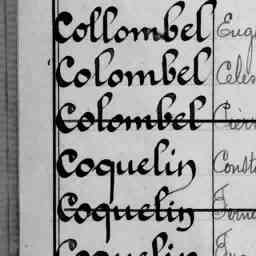 Collombel Eug
Colombel Céles
Colombel Pierr
Coquelin Const
Coquelin Ferne
Coquelin